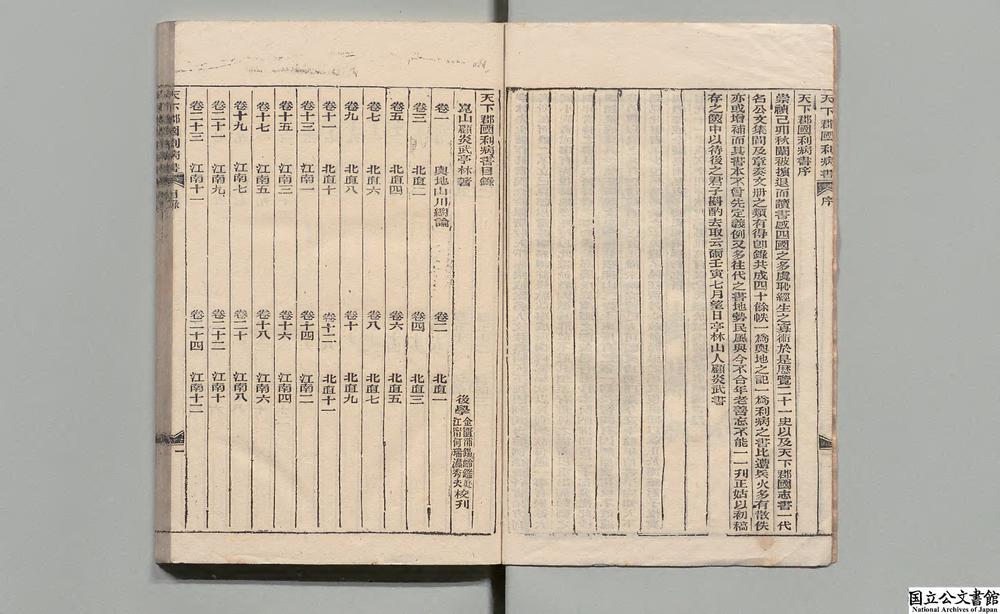 天下郡國利病書 序
天下郡國利病書序
崇禎己卯秋闈被擯退而讀書感四國之多虞恥經生之寡術於是歷覽二十一史以及天下郡國志書一代
名公文集間及章奏文册之類有得卽錄共成四十餘帙一爲輿地之記一爲利病之書比遭兵火多有散佚
亦或增補而其書本不曾先定義例又多往代之書地勢民風與今不合年老善忘不能一一刊正姑以初稿
存之篋中以待後之君子斟酌去取云爾壬寅七月望日亭林山人顧炎武書
天下郡國利病書目錄
崑山顧炎武亭林著 後學 金匱蒲錫齡鑑庭 江甯何瑞瀛秀夫 校刊
卷一 輿地山川總論 卷二 北直一
卷三 北直二 卷四 北直三
卷五 北直四 卷六 北直五
卷七 北直六 卷八 北直七
卷九 北直八 卷十 北直九
卷十一 北直十 卷十二 北直十一
卷十三 江南一 卷十四 江南二
卷十五 江南三 卷十六 江南四
卷十七 江南五 卷十八 江南六
卷十九 江南七 卷二十 江南八
卷二十一 江南九 卷二十二 江南十
卷二十三 江南十一 卷二十四 江南十二
天下郡國利病書 目錄 一
国立公文書館
National Archives of Japan